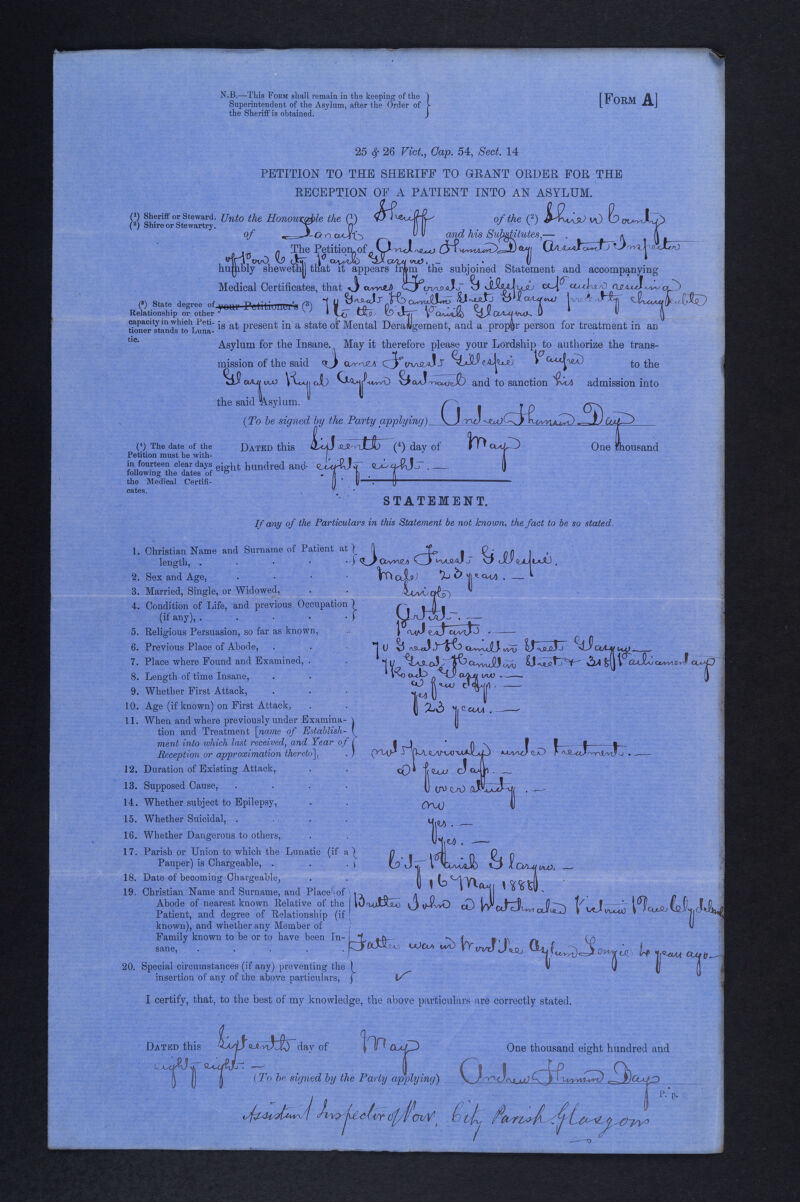 N.B.—This Form shall remain in the keeping of the
Superintendent of the Asylum, after the Order of
the Sheriff is obtained.
[Form A]
25 & 26 Vict., Cap. 54, Sect. 14
PETITION TO THE SHERIFF TO GRANT ORDER FOR THE
RECEPTION OF A PATIENT INTO AN ASYLUM.
(1) Sheriff or Steward.
(2) Shire or Stewartry.
Unto the Honourable the (1) Sheriff of the (2) Shire or County
of Lanark and his Substitutes,—
The Petition of Andrew Thomson Day Assistant Inspector
of Poor City Parish Glasgow.
humbly sheweth that it appears from the subjoined Statement and accompanying
Medical Certificates, that James Forrest Gillespie a Pauper residing
(3) State degree of Relationship or other capacity in which Petitioner stands to Lunatic.
your Petitioner's (3) 74 Great Hamilton Street Glasgow presently chargeable
to the City Parish Glasgow.
is at present in a state of Mental Derangement, and a proper person for treatment in an
Asylum for the Insane. May it therefore please your Lordship to authorize the trans-
mission of the said James Forrest Gillespie Pauper to the
Glasgow Royal Asylum Gartnavel and to sanction his admission into
the said Asylum.
(To be signed by the Party applying) Andrew Thomson Day
(4) The date of the Petition must be within fourteen clear days following the dates of the Medical Certificates.
Dated this Sixteenth (4) day of May One thousand
eight hundred and eighty eight.—
STATEMENT.
If any of the Particulars in this Statement be not known, the fact to be so stated.
1. Christian Name and Surname of Patient at length, James Forrest Gillespie.
2. Sex and Age, Male 23 years.—
3. Married, Single, or Widowed, Single
4. Condition of Life, and previous Occupation (if any), Artist.—
5. Religious Persuasion, so far as known, Protestant.—
6. Previous Place of Abode, 74 Great Hamilton Street Glasgow—
7. Place where Found and Examined, 74 Great Hamilton Street & 348 Parliamentary
Road Glasgow.—
8. Length of time Insane, a few days.—
9. Whether First Attack, Yes
10. Age (if known) on First Attack, 23 years.—
11. When and where previously under Examina-
tion and Treatment [name of Establish-
ment into which last received, and Year of
Reception or approximation thereto], not previously under treatment.—
12. Duration of Existing Attack, a few days.—
13. Supposed Cause, over study.—
14. Whether subject to Epilepsy, no
15. Whether Suicidal, Yes.—
16. Whether Dangerous to others, Yes.—
17. Parish or Union to which the Lunatic (if a
Pauper) is Chargeable, City Parish Glasgow.—
18. Date of becoming Chargeable, 16 May 1888.
19. Christian Name and Surname, and Place of
Abode of nearest known Relative of the
Patient, and degree of Relationship (if
known), and whether any Member of
Family known to be or to have been In-
sane, Brother John a Watchmaker Victoria Place Clydebank
Father was in Woodilee Asylum Lenzie years ago—
20. Special circumstances (if any) preventing the
insertion of any of the above particulars,
I certify, that, to the best of my knowledge, the above particulars are correctly stated.
Dated this Sixteenth day of May One thousand eight hundred and
eighty eight.—
(To be signed by the Party applying) Andrew Thomson Day
P.P.
Assistant Inspector of Poor, City Parish Glasgow